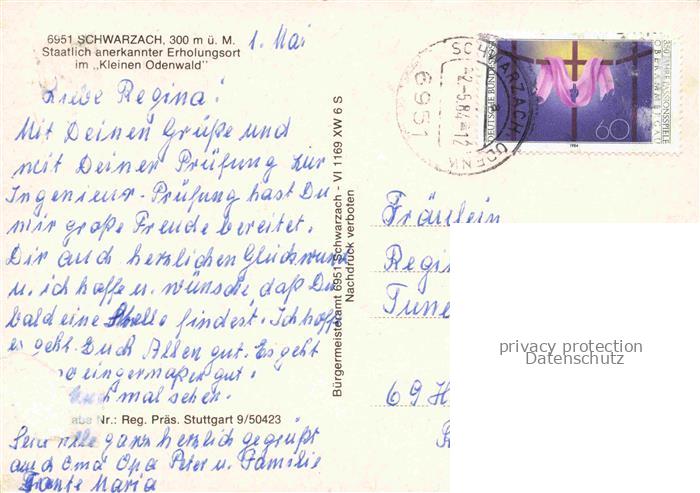 6951 SCHWARZACH, 300 m ü. M.
Staatlich anerkannter Erholungsort
im „Kleinen Odenwald"
1. Mai
Liebe Regina!
Mit Deinen Grüße und
mit Deiner Prüfung zur
Ingenieur-Prüfung hast Du
mir große Freude bereitet.
Dir auch herzlichen Glückwunsch
u. ich hoffe u. wünsche, daß Du
bald eine Stelle findest. Ich hoffe
es geht Euch Allen gut. Es geht
einigermaßen gut.
mal sehen.
abe Nr.: Reg. Präs. Stuttgart 9/50423
ganz herzlich gegrüßt
auch Oma Opa Peter u. Familie
Tante Maria
Bürgermeisteramt 6951 Schwarzach - VI 1169 XW 6 S
Nachdruck verboten
SCHWARZACH, ODENW
-2.-5.84-12
6951
DEUTSCHE BUNDES
350 JAHRE PASSIONSSPIELE
OBERAMMERGAU
60
1984
Fräulein
Regin
Tune
69 H
privacy protection
Datenschutz